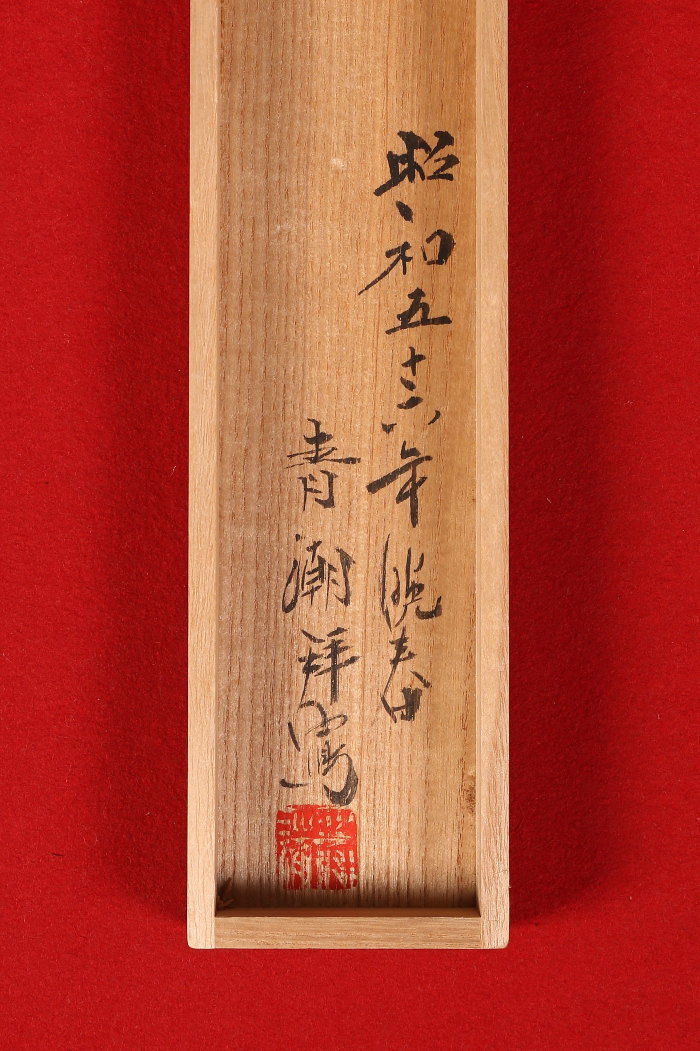 昭和五十六年晩春
青潮拝寫